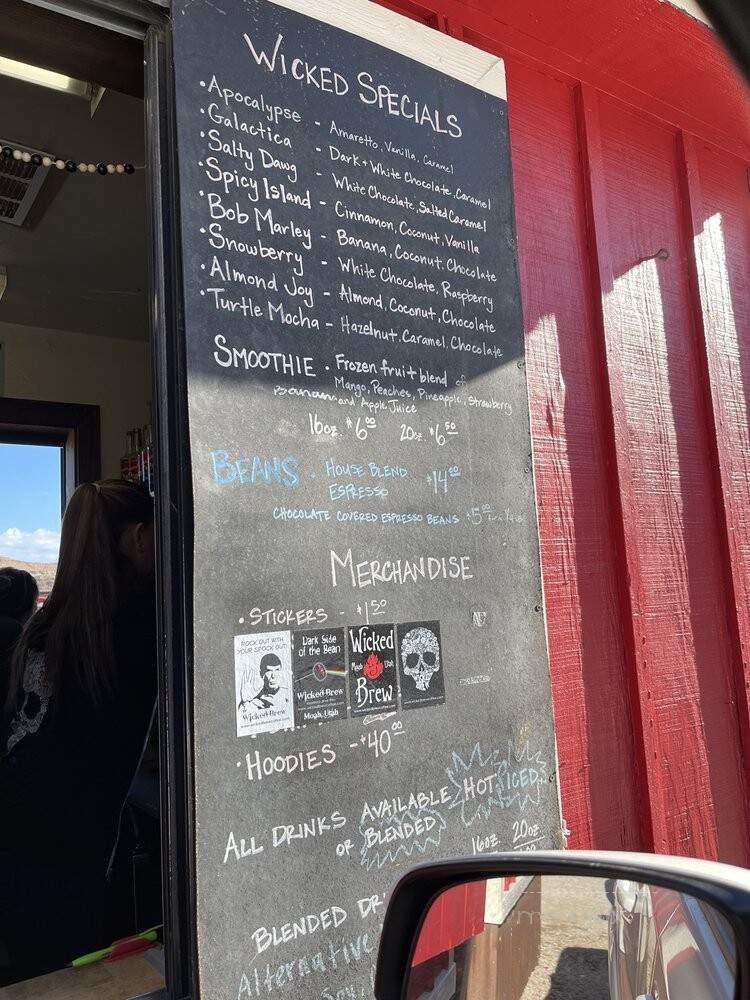 WICKED SPECIALS
• Apocalypse - Amaretto, Vanilla, Caramel
• Galactica - Dark + White Chocolate, Caramel
• Salty Dawg - White Chocolate, Salted Caramel
• Spicy Island - Cinnamon, Coconut, Vanilla
• Bob Marley - Banana, Coconut, Chocolate
• Snowberry - White Chocolate, Raspberry
• Almond Joy - Almond, Coconut, Chocolate
• Turtle Mocha - Hazelnut, Caramel, Chocolate
SMOOTHIE • Frozen fruit blend of
Mango, Peaches, Pineapple, Strawberry
Banana and Apple Juice
16oz. $6.00 20oz $6.50
BEANS • HOUSE BLEND $14.00
ESPRESSO
CHOCOLATE COVERED ESPRESSO BEANS
MERCHANDISE
• STICKERS - $1.50
ROCK OUT WITH
YOUR SPOCK OUT!
Wicked Brew
Dark Side
of the Bean
Wicked Brew
Moab, Utah
Wicked
Moab Utah
Brew
• HOODIES - $40.00
ALL DRINKS AVAILABLE HOT, ICED,
OR BLENDED
16oz. 20oz
BLENDED
Alternative